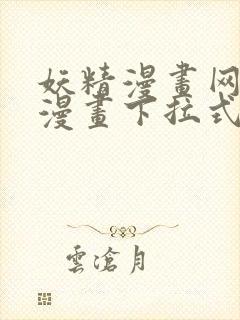 妖精漫畫网
漫畫下拉式
雲滄月